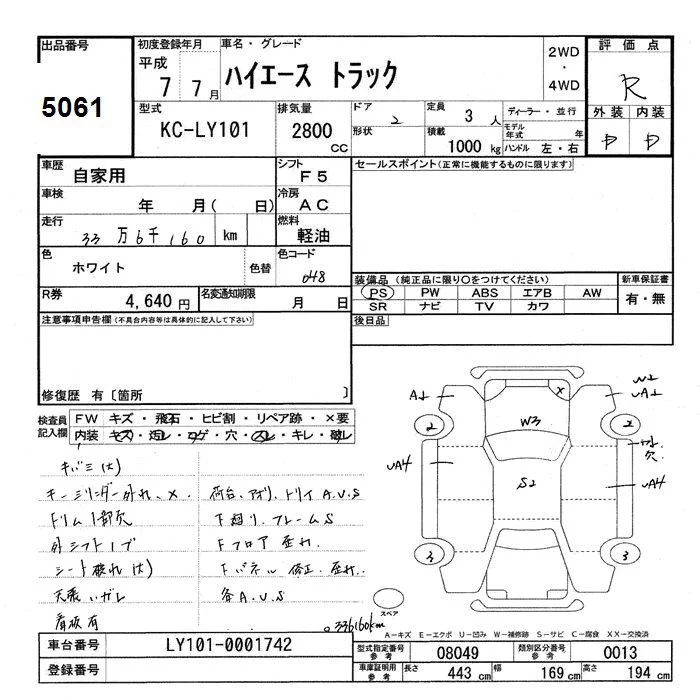 出品番号
5061
初度登録年月
平成 7 年 7 月
車名・グレード
ハイエース トラック
2WD
・
4WD
評価点
R
外装 内装
D D
型式
KC-LY101
排気量
2800 CC
ドア 2
形状
定員 3 人
積載 1000 kg
ディーラー・並行
モデル年式 年
ハンドル 左・右
車歴
自家用
シフト
F5
車検
年 月( 日)
冷房
AC
走行
33 万 6 千 160 km
燃料
軽油
色
ホワイト
色替
色コード
048
R券
4,640 円
名変通知期限
月 日
セールスポイント(正常に機能するものに限ります)
装備品 (純正品に限り○をつけてください)
PS PW ABS エアB AW
SR ナビ TV カワ
新車保証書
有・無
後日品
注意事項申告欄(不具合内容等は具体的に記入して下さい)
修復歴 有〔箇所 〕
検査員記入欄
FW キズ・飛石・ヒビ割・リペア跡・×要
内装 キズ・汚レ・コゲ・穴・スレ・キレ・破レ
キバミ(大)
キーシリンダー外れ、×
ドリム1部欠
外シフト1ブ
シート破れ(大)
天張いガレ
看板有
荷台、アオリ、トリイA.U.S
下廻り、フレームS
Fフロア 歪れ、
各A.U.S
336160km
A2
W3
×
W2
UA2
2
2
欠
UA4
S2
UA4
3
3
スペア
A-キズ E-エクボ U-凹み W-補修跡 S-サビ C-腐食 XX-交換済
車台番号
LY101-0001742
登録番号
型式指定番号 参考
08049
類別区分番号 参考
0013
車庫証明用 参考
長さ 443 cm
幅 169 cm
高さ 194 cm